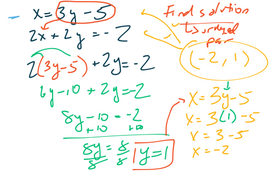 x = 3y - 5
2x + 2y = -2
2(3y - 5) + 2y = -2
6y - 10 + 2y = -2
8y - 10 = -2
+10 +10
8y = 8
8 8
y = 1
Find solution
as ordered
pair
(-2, 1)
x = 3y - 5
x = 3(1) - 5
x = 3 - 5
x = -2